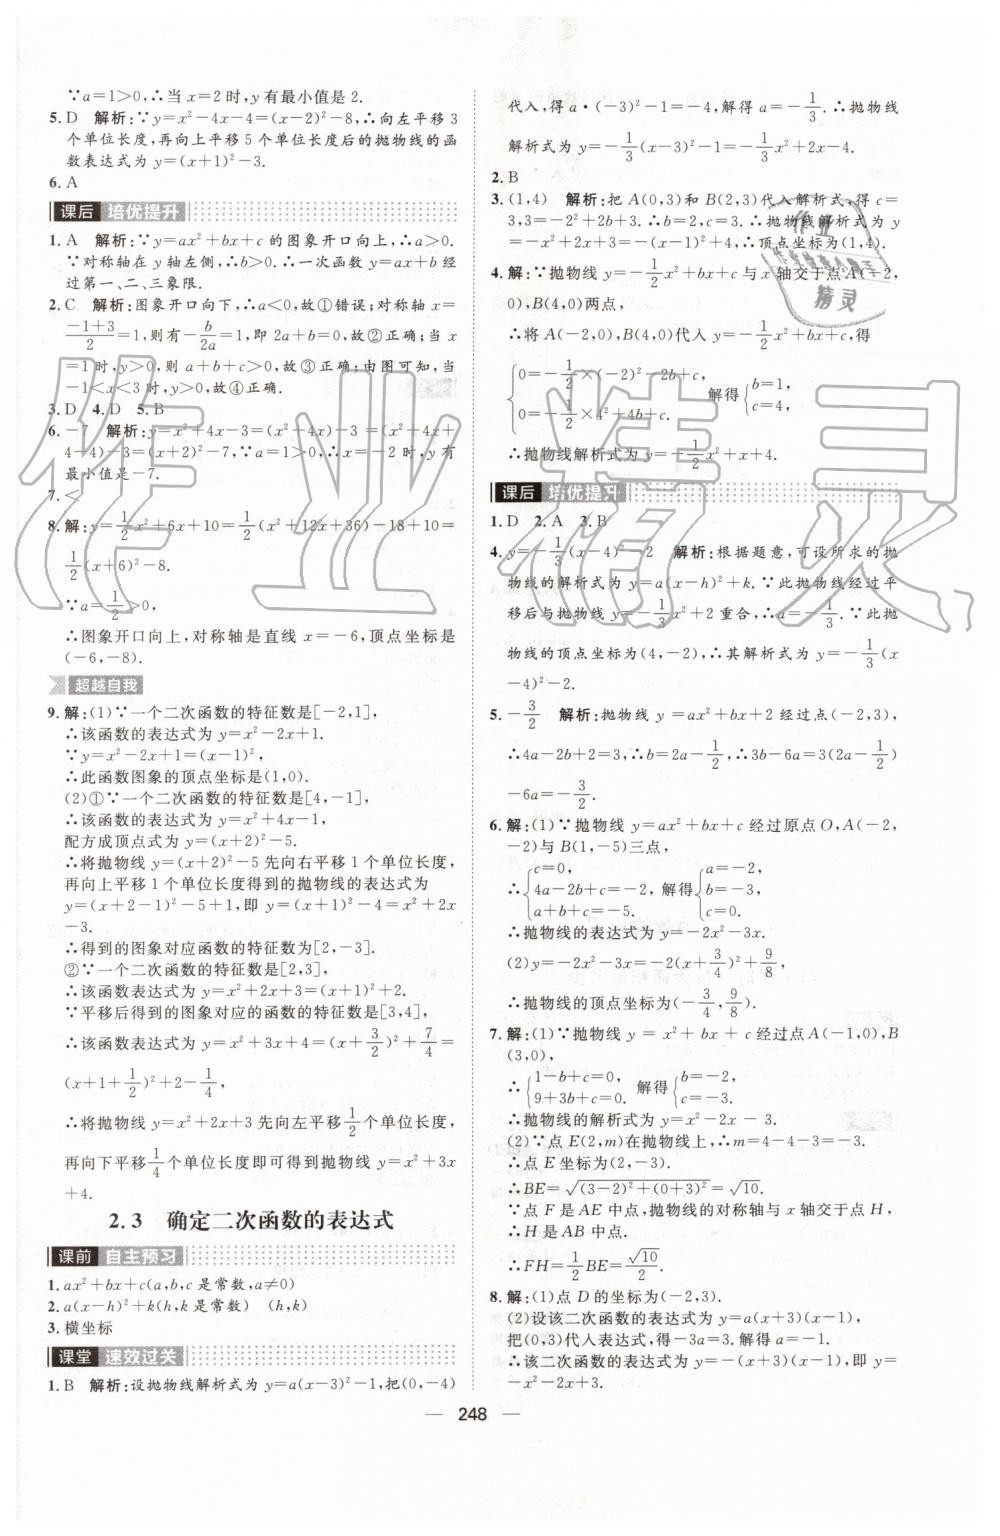 ∵a=1>0,∴当 x=2 时,y 有最小值是 2.
5. D 解析:∵y=x²-4x-4=(x-2)²-8,∴向左平移 3
个单位长度,再向上平移 5 个单位长度后的抛物线的函
数表达式为 y=(x+1)²-3.
6. A
课后 培优提升
1. A 解析:∵y=ax²+bx+c 的图象开口向上,∴a>0.
∵对称轴在 y 轴左侧,∴b>0. ∴一次函数 y=ax+b 经
过第一、二、三象限.
2. C 解析:图象开口向下,∴a<0,故①错误;对称轴 x=
(-1+3)/2=1,则有-b/2a=1,即 2a+b=0,故②正确;当 x
=1 时,y>0,则 a+b+c>0,故③正确;由图可知,当
-1<x<3 时,y>0,故④正确.
3. D 4. D 5. B
6. -7 解析:y=x²+4x-3=(x²+4x)-3=(x²+4x+
4-4)-3=(x+2)²-7,∵a=1>0,∴x=-2 时,y 有
最小值是-7.
7. <
8. 解:y=1/2x²+6x+10=1/2(x²+12x+36)-18+10=
1/2(x+6)²-8.
∵a=1/2>0,
∴图象开口向上,对称轴是直线 x=-6,顶点坐标是
(-6,-8).
超越自我
9. 解:(1)∵一个二次函数的特征数是[-2,1],
∴该函数的表达式为 y=x²-2x+1.
∵y=x²-2x+1=(x-1)²,
∴此函数图象的顶点坐标是(1,0).
(2)①∵一个二次函数的特征数是[4,-1],
∴该函数的表达式为 y=x²+4x-1,
配方成顶点式为 y=(x+2)²-5.
∴将抛物线 y=(x+2)²-5 先向右平移 1 个单位长度,
再向上平移 1 个单位长度得到的抛物线的表达式为
y=(x+2-1)²-5+1,即 y=(x+1)²-4=x²+2x
-3.
∴得到的图象对应函数的特征数为[2,-3].
②∵一个二次函数的特征数是[2,3],
∴该函数表达式为 y=x²+2x+3=(x+1)²+2.
∵平移后得到的图象对应的函数的特征数是[3,4],
∴该函数表达式为 y=x²+3x+4=(x+3/2)²+7/4=
(x+1+1/2)²+2-1/4,
∴将抛物线 y=x²+2x+3 先向左平移 1/2 个单位长度,
再向下平移 1/4 个单位长度即可得到抛物线 y=x²+3x
+4.
2.3 确定二次函数的表达式
课前 自主预习
1. ax²+bx+c(a,b,c 是常数,a≠0)
2. a(x-h)²+k(h,k 是常数) (h,k)
3. 横坐标
课堂 速效过关
1. B 解析:设抛物线解析式为 y=a(x-3)²-1,把(0,-4)
代入,得 a·(-3)²-1=-4,解得 a=-1/3. ∴抛物线
解析式为 y=-1/3(x-3)²-1=-1/3x²+2x-4.
2. B
3. (1,4) 解析:把 A(0,3)和 B(2,3)代入解析式,得 c=
3,3=-2²+2b+3. ∴b=2. ∴抛物线解析式为 y=
-x²+2x+3=-(x-1)²+4,∴顶点坐标为(1,4).
4. 解:∵抛物线 y=-1/2x²+bx+c 与 x 轴交于点 A(-2,
0),B(4,0)两点,
∴将 A(-2,0),B(4,0)代入 y=-1/2x²+bx+c,得
{0=-1/2×(-2)²-2b+c, 0=-1/2×4²+4b+c. 解得{b=1, c=4.
∴抛物线解析式为 y=-1/2x²+x+4.
课后 培优提升
1. D 2. A 3. B
4. y=-1/3(x-4)²-2 解析:根据题意,可设所求的抛
物线的解析式为 y=a(x-h)²+k. ∵此抛物线经过平
移后与抛物线 y=-1/3x²+2 重合,∴a=-1/3. ∵此抛
物线的顶点坐标为(4,-2),∴其解析式为 y=-1/3(x
-4)²-2.
5. -3/2 解析:抛物线 y=ax²+bx+2 经过点(-2,3),
∴4a-2b+2=3,∴b=2a-1/2,∴3b-6a=3(2a-1/2)
-6a=-3/2.
6. 解:(1)∵抛物线 y=ax²+bx+c 经过原点 O,A(-2,
-2)与 B(1,-5)三点,
∴{c=0, 4a-2b+c=-2, a+b+c=-5. 解得{a=-2, b=-3, c=0.
∴抛物线的表达式为 y=-2x²-3x.
(2)y=-2x²-3x=-2(x+3/4)²+9/8,
∴抛物线的顶点坐标为(-3/4,9/8).
7. 解:(1)∵抛物线 y=x²+bx+c 经过点 A(-1,0),B
(3,0),
∴{1-b+c=0, 9+3b+c=0. 解得{b=-2, c=-3.
∴抛物线的解析式为 y=x²-2x-3.
(2)∵点 E(2,m)在抛物线上,∴m=4-4-3=-3.
∴点 E 坐标为(2,-3).
∴BE=√((3-2)²+(0+3)²)=√10.
∵点 F 是 AE 中点,抛物线的对称轴与 x 轴交于点 H,
∴H 是 AB 中点.
∴FH=1/2BE=√10/2.
8. 解:(1)点 D 的坐标为(-2,3).
(2)设该二次函数的表达式为 y=a(x+3)(x-1).
把(0,3)代入表达式,得-3a=3. 解得 a=-1.
∴该二次函数的表达式为 y=-(x+3)(x-1)=
-x²-2x+3.
— 248 —
作业精灵
作业
精灵